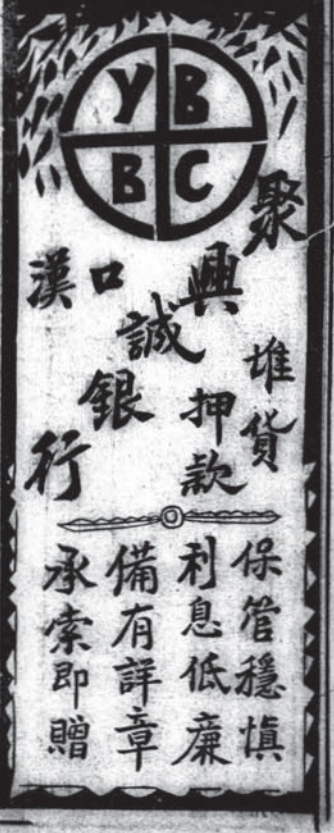 Y B
B C
聚興誠銀行
漢口
堆貨
押款
保管穩慎
利息低廉
備有詳章
承索即贈